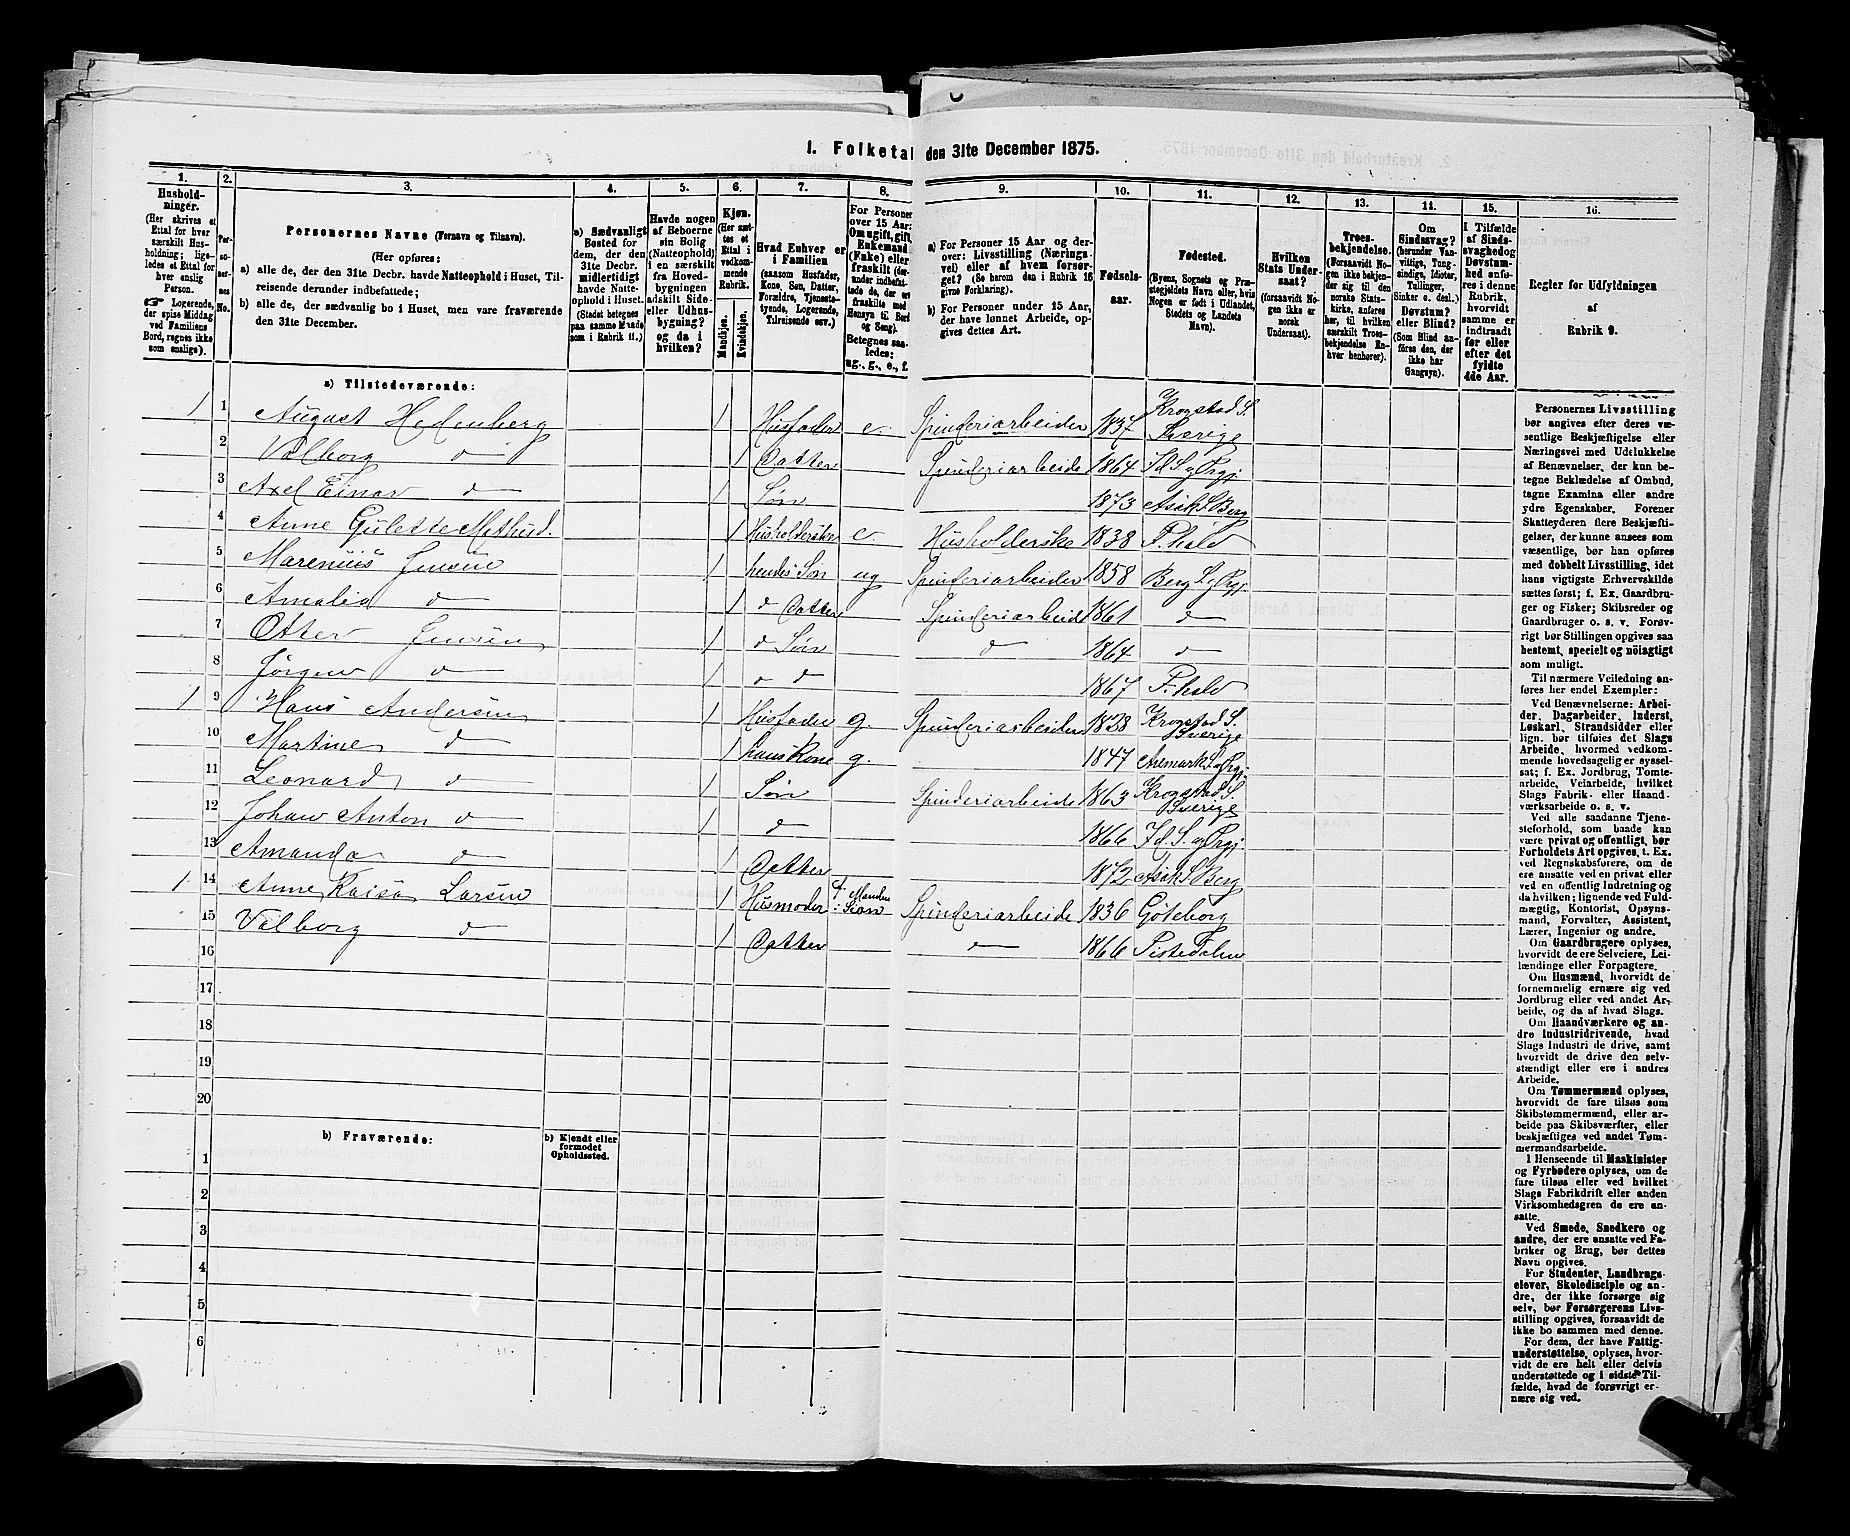 1. Folketal den 31te December 1875.
1. 2. 3. 4. 5. 6. 7. 8. 9. 10. 11. 12. 13. 14. 15. 16.
Hushold-
ninger.
(Her skrives et
Ettal for hver
særskilt Hus-
holdning; lige-
ledes et Ettal for
hver enslig
Person.
☞ Logerende,
der spise Middag
ved Familiens
Bord, regnes ikke
som enslige).
Per-
so-
ner-
nes
No.
Personernes Navne (Fornavn og Tilnavn).
(Her opføres:
a) alle de, der den 31te Decbr. havde Natteophold i Huset, Til-
reisende derunder indbefattede;
b) alle de, der sædvanlig bo i Huset, men vare fraværende
den 31te December.
a) Sædvanligt
Bosted for
dem, der den
31te Decbr.
midlertidigt
havde Natte-
ophold i Huset.
(Stedet betegnes
paa samme Maade
som i Rubrik 11.)
Havde nogen
af Beboerne
sin Bolig
(Natteophold)
i en særskilt
fra Hoved-
bygningen
adskilt Side-
eller Udhus-
bygning?
og da i
hvilken?
Kjøn.
(Her sæt-
tes et
Ettal i
vedkom-
mende
Rubrik.
Mandkjøn.
Kvindekjøn.
Hvad Enhver er
i Familien
(saasom Husfader,
Kone, Søn, Datter,
Forældre, Tjeneste-
tyende, Logerende,
Tilreisende osv.)
For Personer
over 15 Aar:
Om ugift, gift,
Enkemand
(Enke) eller
fraskilt
Betegnes saa-
ledes:
ug., g., e., f.
a) For Personer 15 Aar og der-
over: Livsstilling (Nærings-
vei) eller af hvem forsør-
get? (Se herom den i Rubrik 16
givne Forklaring).
b) For Personer under 15 Aar,
der have lønnet Arbeide, op-
gives dettes Art.
Fødsels-
aar.
Fødested.
(Byens, Sognets og Præ-
stegjeldets Navn eller, hvis
Nogen er født i Udlandet,
Stedets og Landets
Navn).
Hvilken
Stats Under-
saat?
(forsaavidt No-
gen ikke er
norsk
Undersaat).
Troes-
bekjendelse.
(Forsaavidt No-
gen ikke bekjen-
der sig til den
norske Stats-
kirke, anføres
her, til hvilken
særskilt Troes-
bekjendelse En-
hver henhører).
Om
Sindssvag?
(herunder Van-
vittige, Tung-
sindige, Idioter,
Tullinger,
Sinker o. desl.)
Døvstum?
eller Blind?
(Som Blind an-
føres den, der
ikke har
Gangsyn).
I Tilfælde
af Sinds-
svaghed og
Døvstum-
hed anfø-
res i denne
Rubrik,
hvorvidt
samme er
indtraadt
før eller
efter det
fyldte
4de Aar.
Regler for Udfyldningen
af
Rubrik 9.
a) Tilstedeværende:
1 1 August Hedenberg 1 Husfader e. Spinderiarbeider 1837 Krogstad S. Sverige
2 Valborg d 1 Datter Spinderiarbeide 1864 Id S. og Prgj
3 Axel Einar d 1 Søn 1873 Asak S Berg
4 Anne Gulette Mathud. 1 Husholderske e. Husholderske 1838 F.hald
5 Marenius Jensen 1 hendes Søn ug Spinderiarbeider 1858 Berg S. og Prgj
6 Amalia d 1 d Datter Spinderiarbeide 1861 d
7 Otter Jensen 1 d Søn d 1864 d
8 Jørgen d 1 d d 1867 F.hald
1 9 Hans Andersen 1 Husfader g. Spinderiarbeider 1838 Krogstad S. Sverige
10 Martine d 1 hans Kone g. 1847 Aremark S. og Prgj.
11 Leonard d 1 Søn Spinderiarbeide 1863 Krogstad S. Sverige
12 Johan Anton d 1 d 1866 Id. S. og Prgj
13 Amanda d 1 Datter 1872 Asak S Berg
1 14 Anne Kaisa Larsen 1 Husmoder Manden Spinderiarbeide 1836 Göteborg
15 Valborg d 1 Datter d 1866 Tistedalen
16
17
18
19
20
b) Fraværende:
b) Kjendt eller
formodet
Opholdssted.
1
2
3
4
5
6
Personernes Livsstilling
bør angives efter deres væ-
sentlige Beskjæftigelse eller
Næringsvei med Udelukkelse
af Benævnelser, der kun be-
tegne Beklædelse af Ombud,
tagne Examina eller andre
ydre Egenskaber. Forener
Skatteyderen flere Beskjæfti-
gelser, der kunne ansees som
væsentlige, bør han opføres
med dobbelt Livsstilling, idet
hans vigtigste Erhvervskilde
sættes først; f. Ex. Gaardbru-
ger og Fisker; Skibsreder og
Gaardbruger o. s. v. Forøv-
rigt bør Stillingen opgives saa
bestemt, specielt og nöiagtigt
som muligt.
Til nærmere Veiledning an-
føres her endel Exempler:
Ved Benævnelserne: Arbei-
der, Dagarbeider, Inderst,
Løskarl, Strandsidder eller
lign. bør tilføies det Slags
Arbeide, hvormed vedkom-
mende hovedsagelig er syssel-
sat; f. Ex. Jordbrug, Tomte-
arbeide, Veiarbeide, hvilket
Slags Fabrik- eller Haand-
værksarbeide o. s. v.
Ved alle saadanne Tjene-
steforhold, som baade kan
være privat og offentligt, bør
Forholdets Art opgives, t. Ex.
ved Regnskabsførere, om de
ere ansatte ved en privat eller
ved en offentlig Indretning og
da hvilken; lignende ved Fuld-
mægtig, Kontorist, Opsyns-
mand, Forvalter, Assistent,
Lærer, Ingeniør og andre.
Om Gaardbrugere oplyses,
hvorvidt de ere Selveiere, Lei-
lændinge eller Forpagtere.
Om Husmænd, hvorvidt de
fornemmelig ernære sig ved
Jordbrug eller ved andet Ar-
beide, og da af hvad Slags.
Om Haandværkere og an-
dre Industridrivende, hvad
Slags Industri de drive, samt
hvorvidt de drive den selv-
stændigt eller ere i andres
Arbeide.
Om Tømmermænd oplyses,
hvorvidt de fare tilsøs som
Skibstømmermænd, eller ar-
beide paa Skibsværfter, eller
beskjæftiges ved andet Tøm-
mermandsarbeide.
I Henseende til Maskinister
og Fyrbødere oplyses, om de
fare tilsøs eller ved hvilket
Slags Fabrikdrift eller anden
Virksomhedsgren de ere an-
satte.
Ved Smede, Snedkere og
andre, der ere ansatte ved Fa-
briker og Brug, bør dettes
Navn opgives.
For Studenter, Landbrugs-
elever, Skoledisciple og an-
dre, der ikke forsørge sig
selv, bør Forsørgerens Livs-
stilling opgives, forsaavidt de
ikke bo sammen med denne.
For dem, der have Fattig-
understøttelse, oplyses, hvor-
vidt de ere helt eller delvis
understøttede og i sidste Til-
fælde, hvad de forøvrigt er-
nære sig ved.